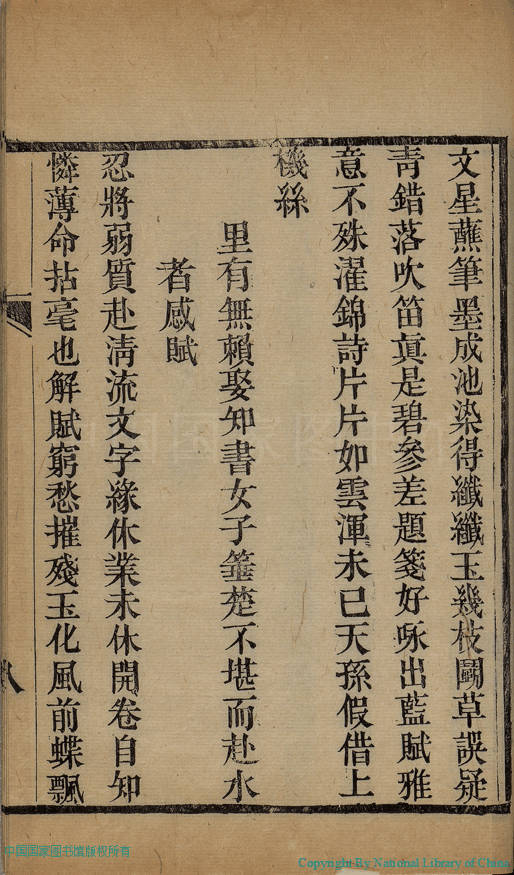 文星蘸筆墨成池染得纖纖玉幾枝鬬草誤疑
青錯落吹笛眞是碧參差題箋好咏出藍賦雅
意不殊濯錦詩片片如雲渾未已天孫假借上
機絲
里有無賴娶知書女子箠楚不堪而赴水
者感賦
忍將弱質赴清流文字緣休業未休開卷自知
憐薄命拈毫也解賦窮愁摧殘玉化風前蝶飄
八
中国国家图书馆版权所有
Copyright By National Library of China